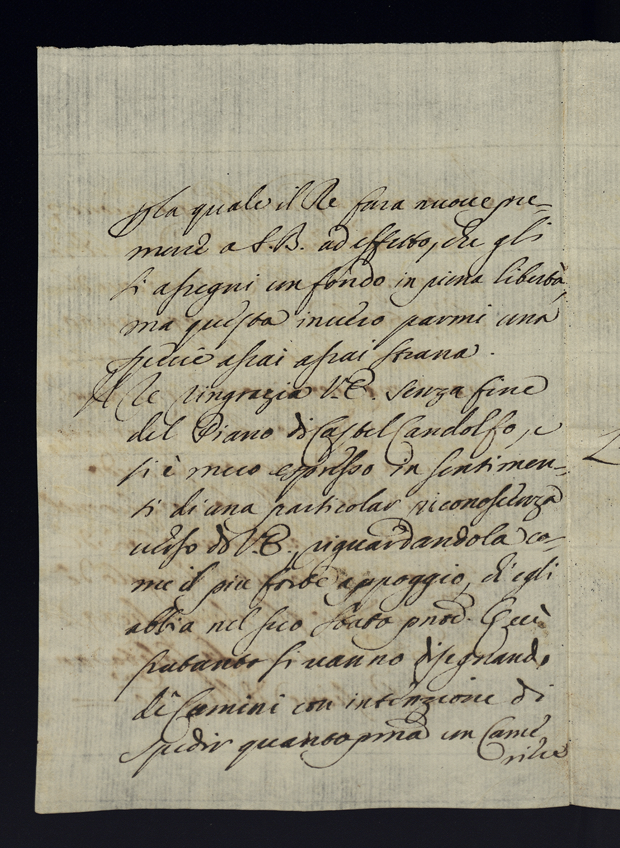 sta quale il Re fara nuove pre-
mure a S. B. ad effetto, che gli
si assegni un fondo in piena libertà,
ma questa invero parmi una
specie assai assai strana.
Il Re ringrazia V. E. senza fine
del Piano di Castel Candolfo, e
si è meco espresso in sentimen-
ti di una particolar riconoscenza
verso di V. E., riguardandola co-
me il piu forte appoggio, ch'egli
abbia nel suo stato pnte. Qui
frattanto si vanno disegnando
de Camini con intenzione di
spedir quanto pma un Came
riere